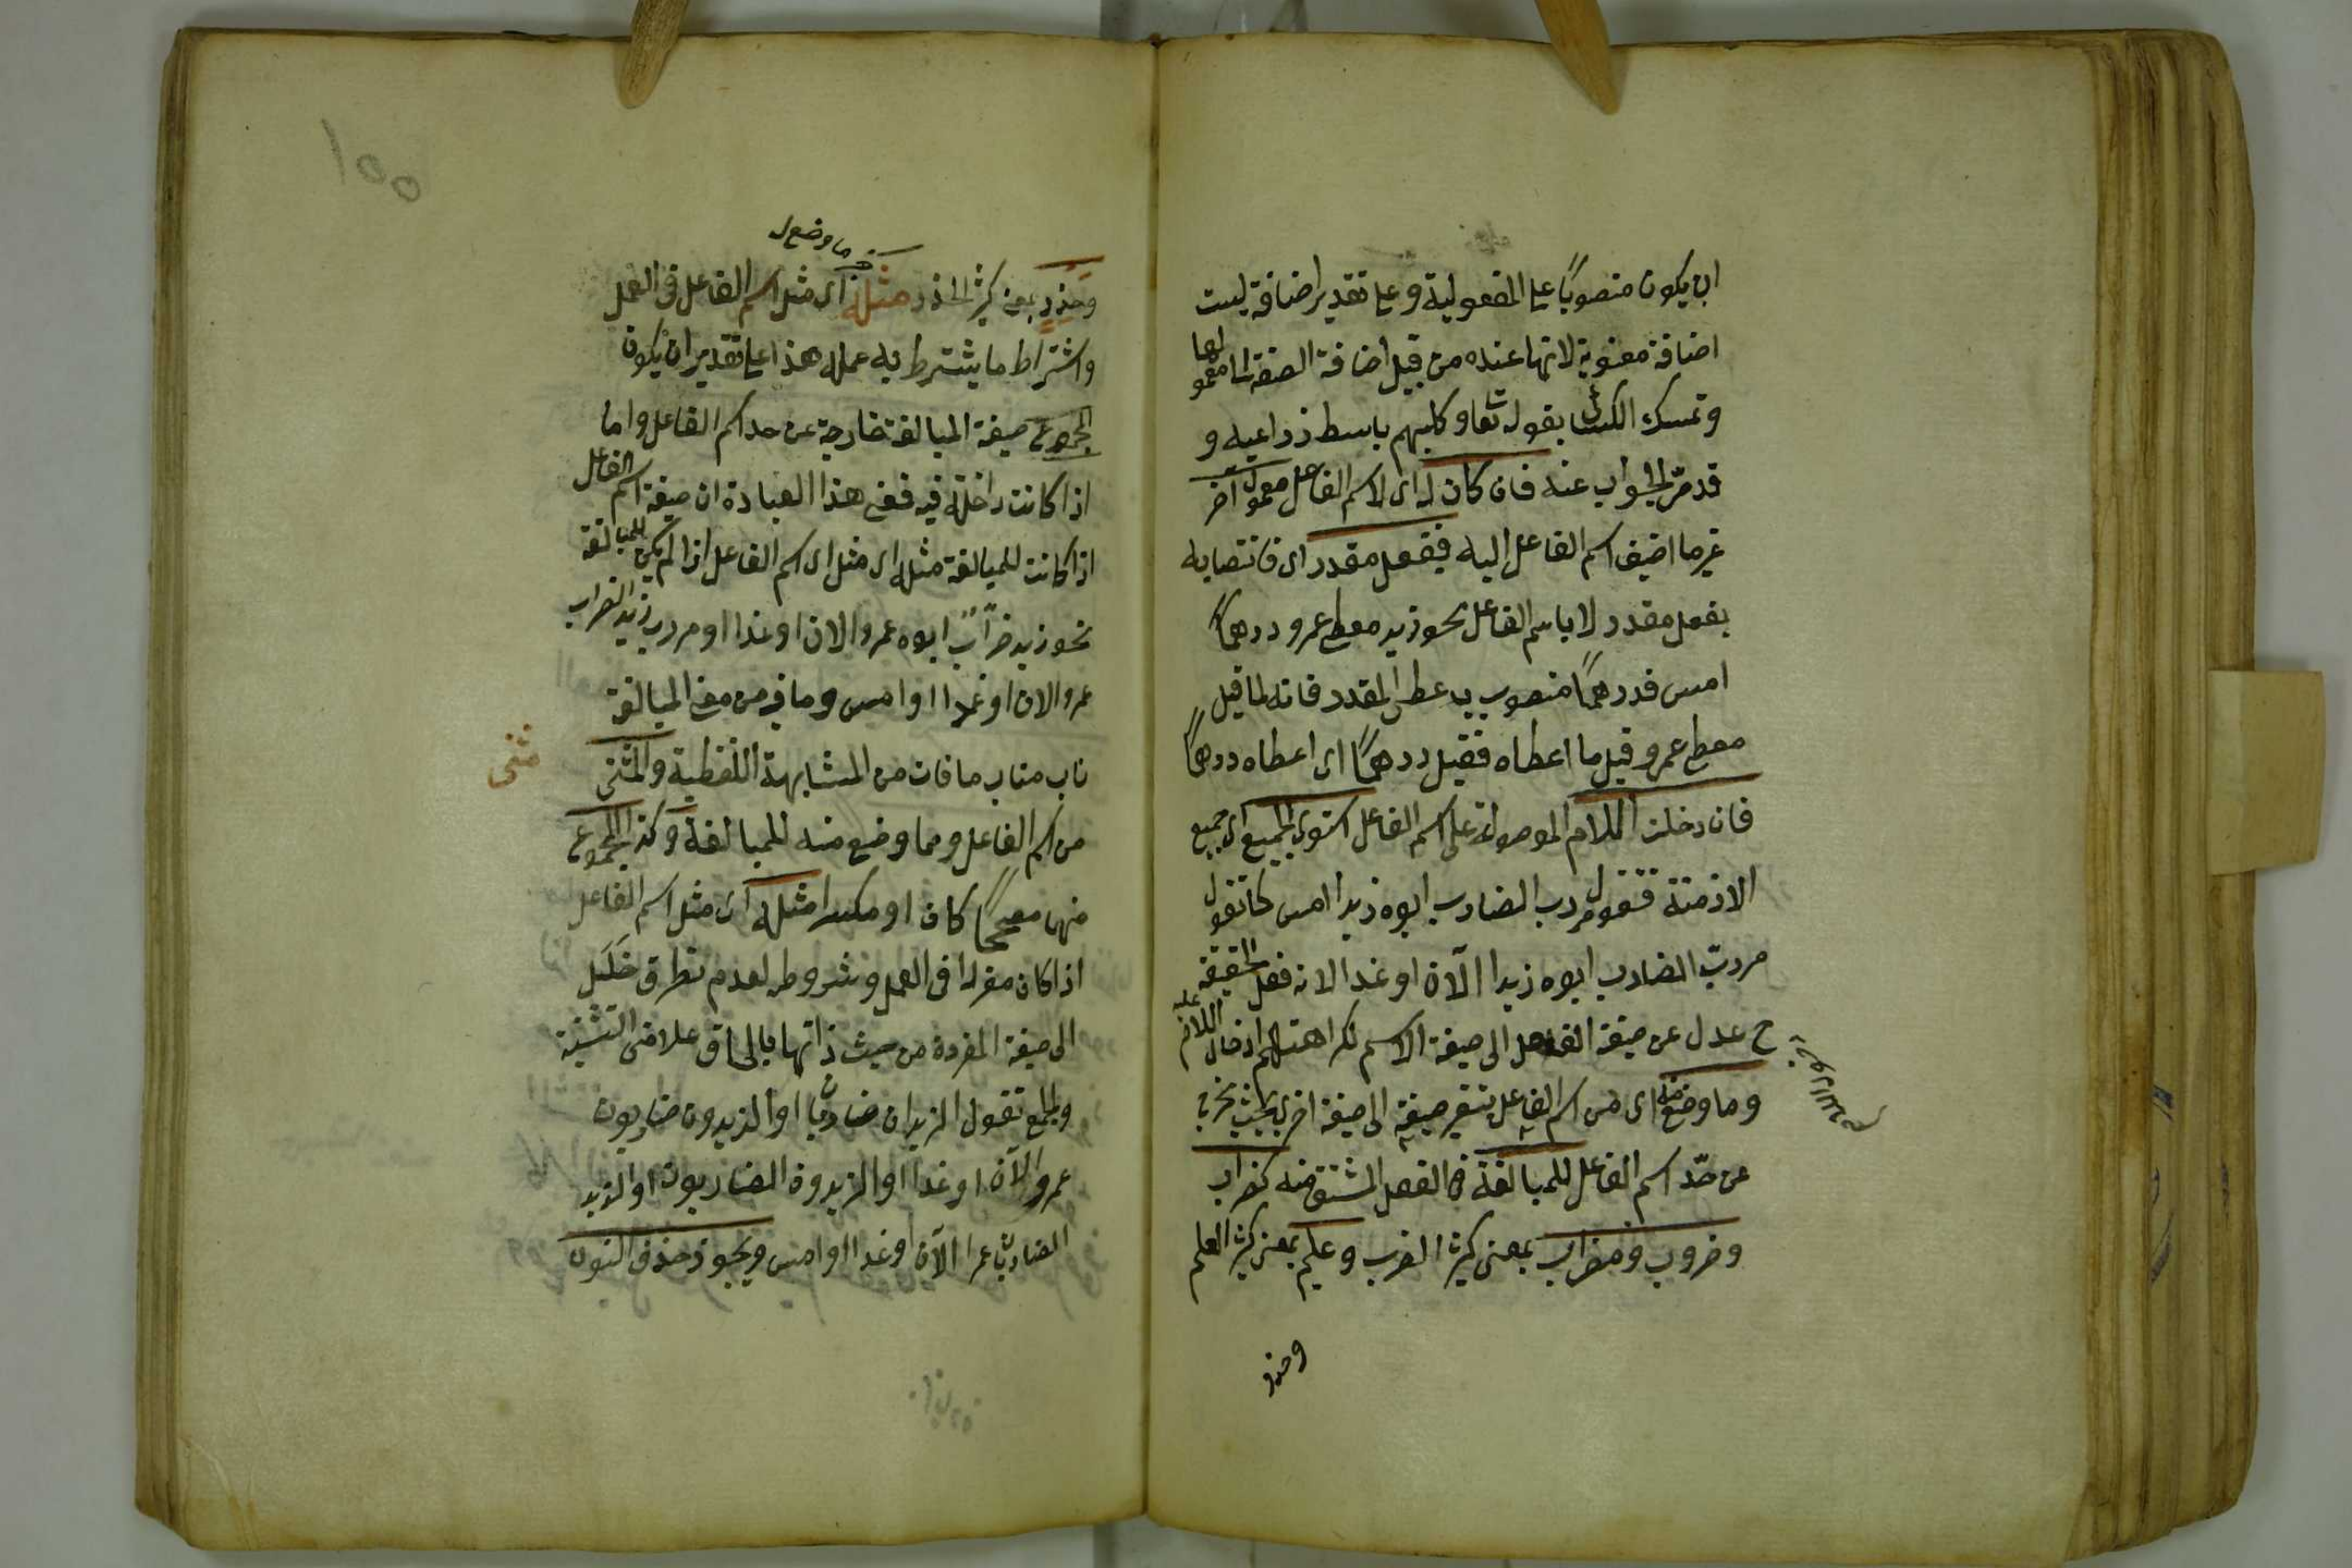 ان يكون منصوبًا على المفعولية وعلى تقدير اضافة ليست
اضافة معنوية لانها عنده من قبيل اضافة الصفة الى معمولها
وتمسك الكسائى بقوله تعا وكلبهم باسط ذراعيه و
قد مرّ الجواب عنه فان كان له اى لاسم الفاعل معمول آخر
غير ما اضيف اسم الفاعل اليه فبفعل مقدر اى فانتصابه
بفعل مقدر لا باسم الفاعل نحو زيد معطى عمرو درهمًا
امس فدرهمًا منصوب باعطى المقدر فانه لما قيل
معطى عمرو قيل ما اعطاه فقيل درهمًا اى اعطاه درهمًا
فان دخلت اللام الموصولة على اسم الفاعل استوى الجميع اى جميع
الازمنة فتقول مررت الضارب ابوه زيدا امس كما تقول
مررت الضارب ابوه زيدا الآن او غدا لانه فعل الحقيقة
ح عدل عن صيغة الفعل الى صيغة الاسم لكراهتهم ادخال اللام عليه
وما وضع منه اى من اسم الفاعل بتغير صيغته الى صيغة اخرى بحيث يخرج
عن حدّ اسم الفاعل للمبالغة فى الفعل المشتق منه كضراب
وضروب ومضراب بمعنى كثير الضرب وعليم بمعنى كثير العلم
وحذر
١٥٥
ما وضع ل
وحَذِرٍ بمعنى كثير الحذر مثله اى مثل اسم الفاعل فى العمل
واشتراط ما يشترط به عمله هذا على تقدير ان يكون
صيغة المبالغة خارجة عن حد اسم الفاعل واما
اذا كانت داخلة فيه فمعنى هذا العبارة ان صيغة اسم الفاعل
اذا كانت للمبالغة مثله اى مثل اسم الفاعل اذا لم يكن للمبالغة
نحو زيد ضرّاب ابوه عمروا الان او غدا او مررت بزيد الضراب
عمروا الان او غدا او امس وما فيه من معنى المبالغة
ناب مناب ما فات من المشابهة اللفظية والمثنى
مثنى
من اسم الفاعل ومما وضع منه للمبالغة وكذا المجموع
منهما مصححًا كان او مكسرا مثله اى مثل اسم الفاعل
اذا كان مفردا فى العمل وشروطه لعدم تطرق خَلَل
الى صيغة المفردة من حيث ذاتها بالحاق علامتى التثنية
والجمع تقول الزيدان ضاربان او الزيدون ضاربون
عمروا الآن او غدا او الزيدون الضاربون او الزيد
الضاربان عمرا الآن او غدا او امس ويجوز حذف النون